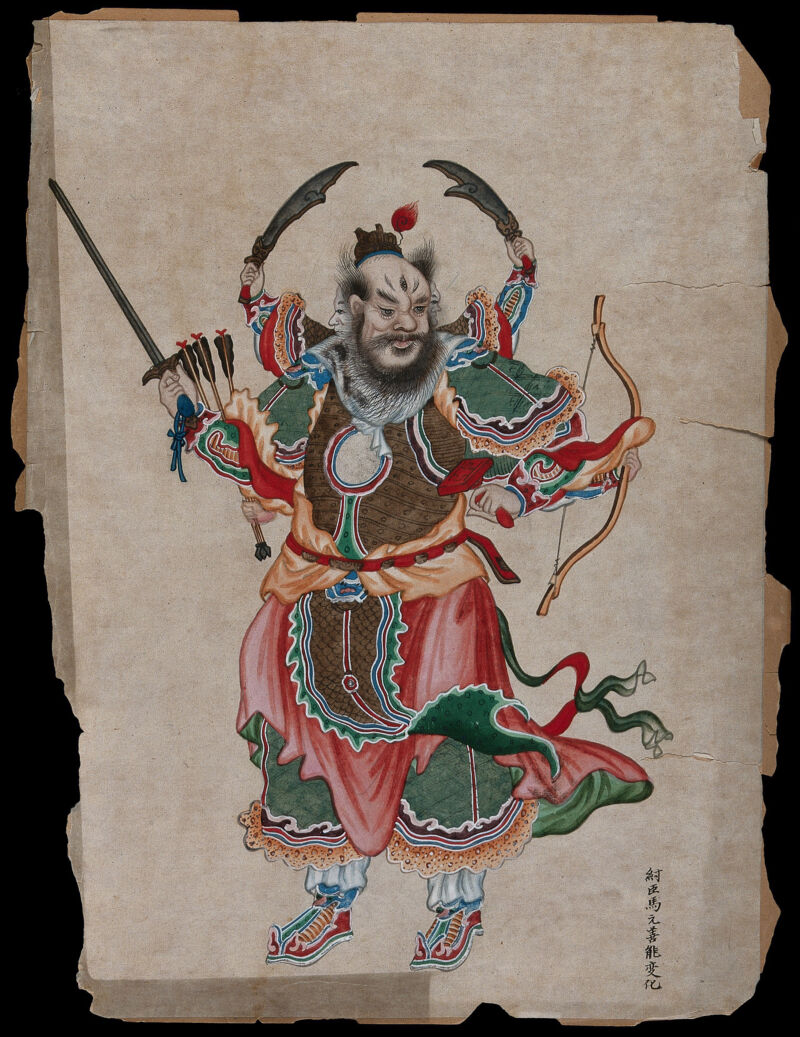 紂臣馬元善能变化